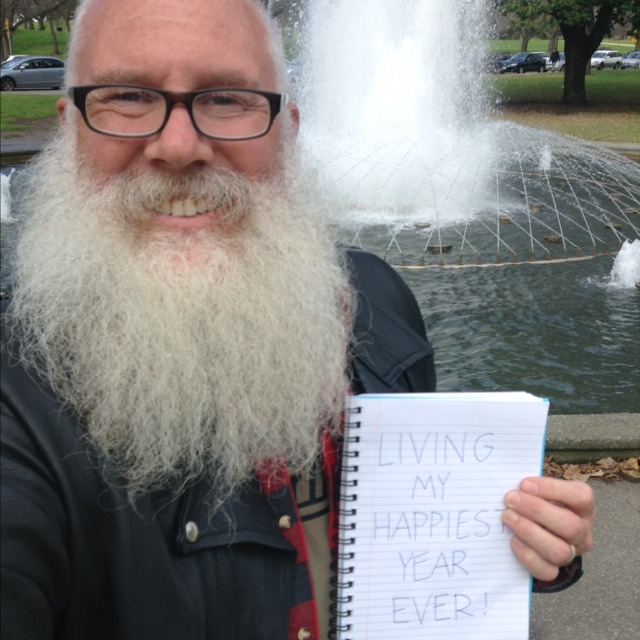 LIVING
MY
HAPPIEST
YEAR
EVER!